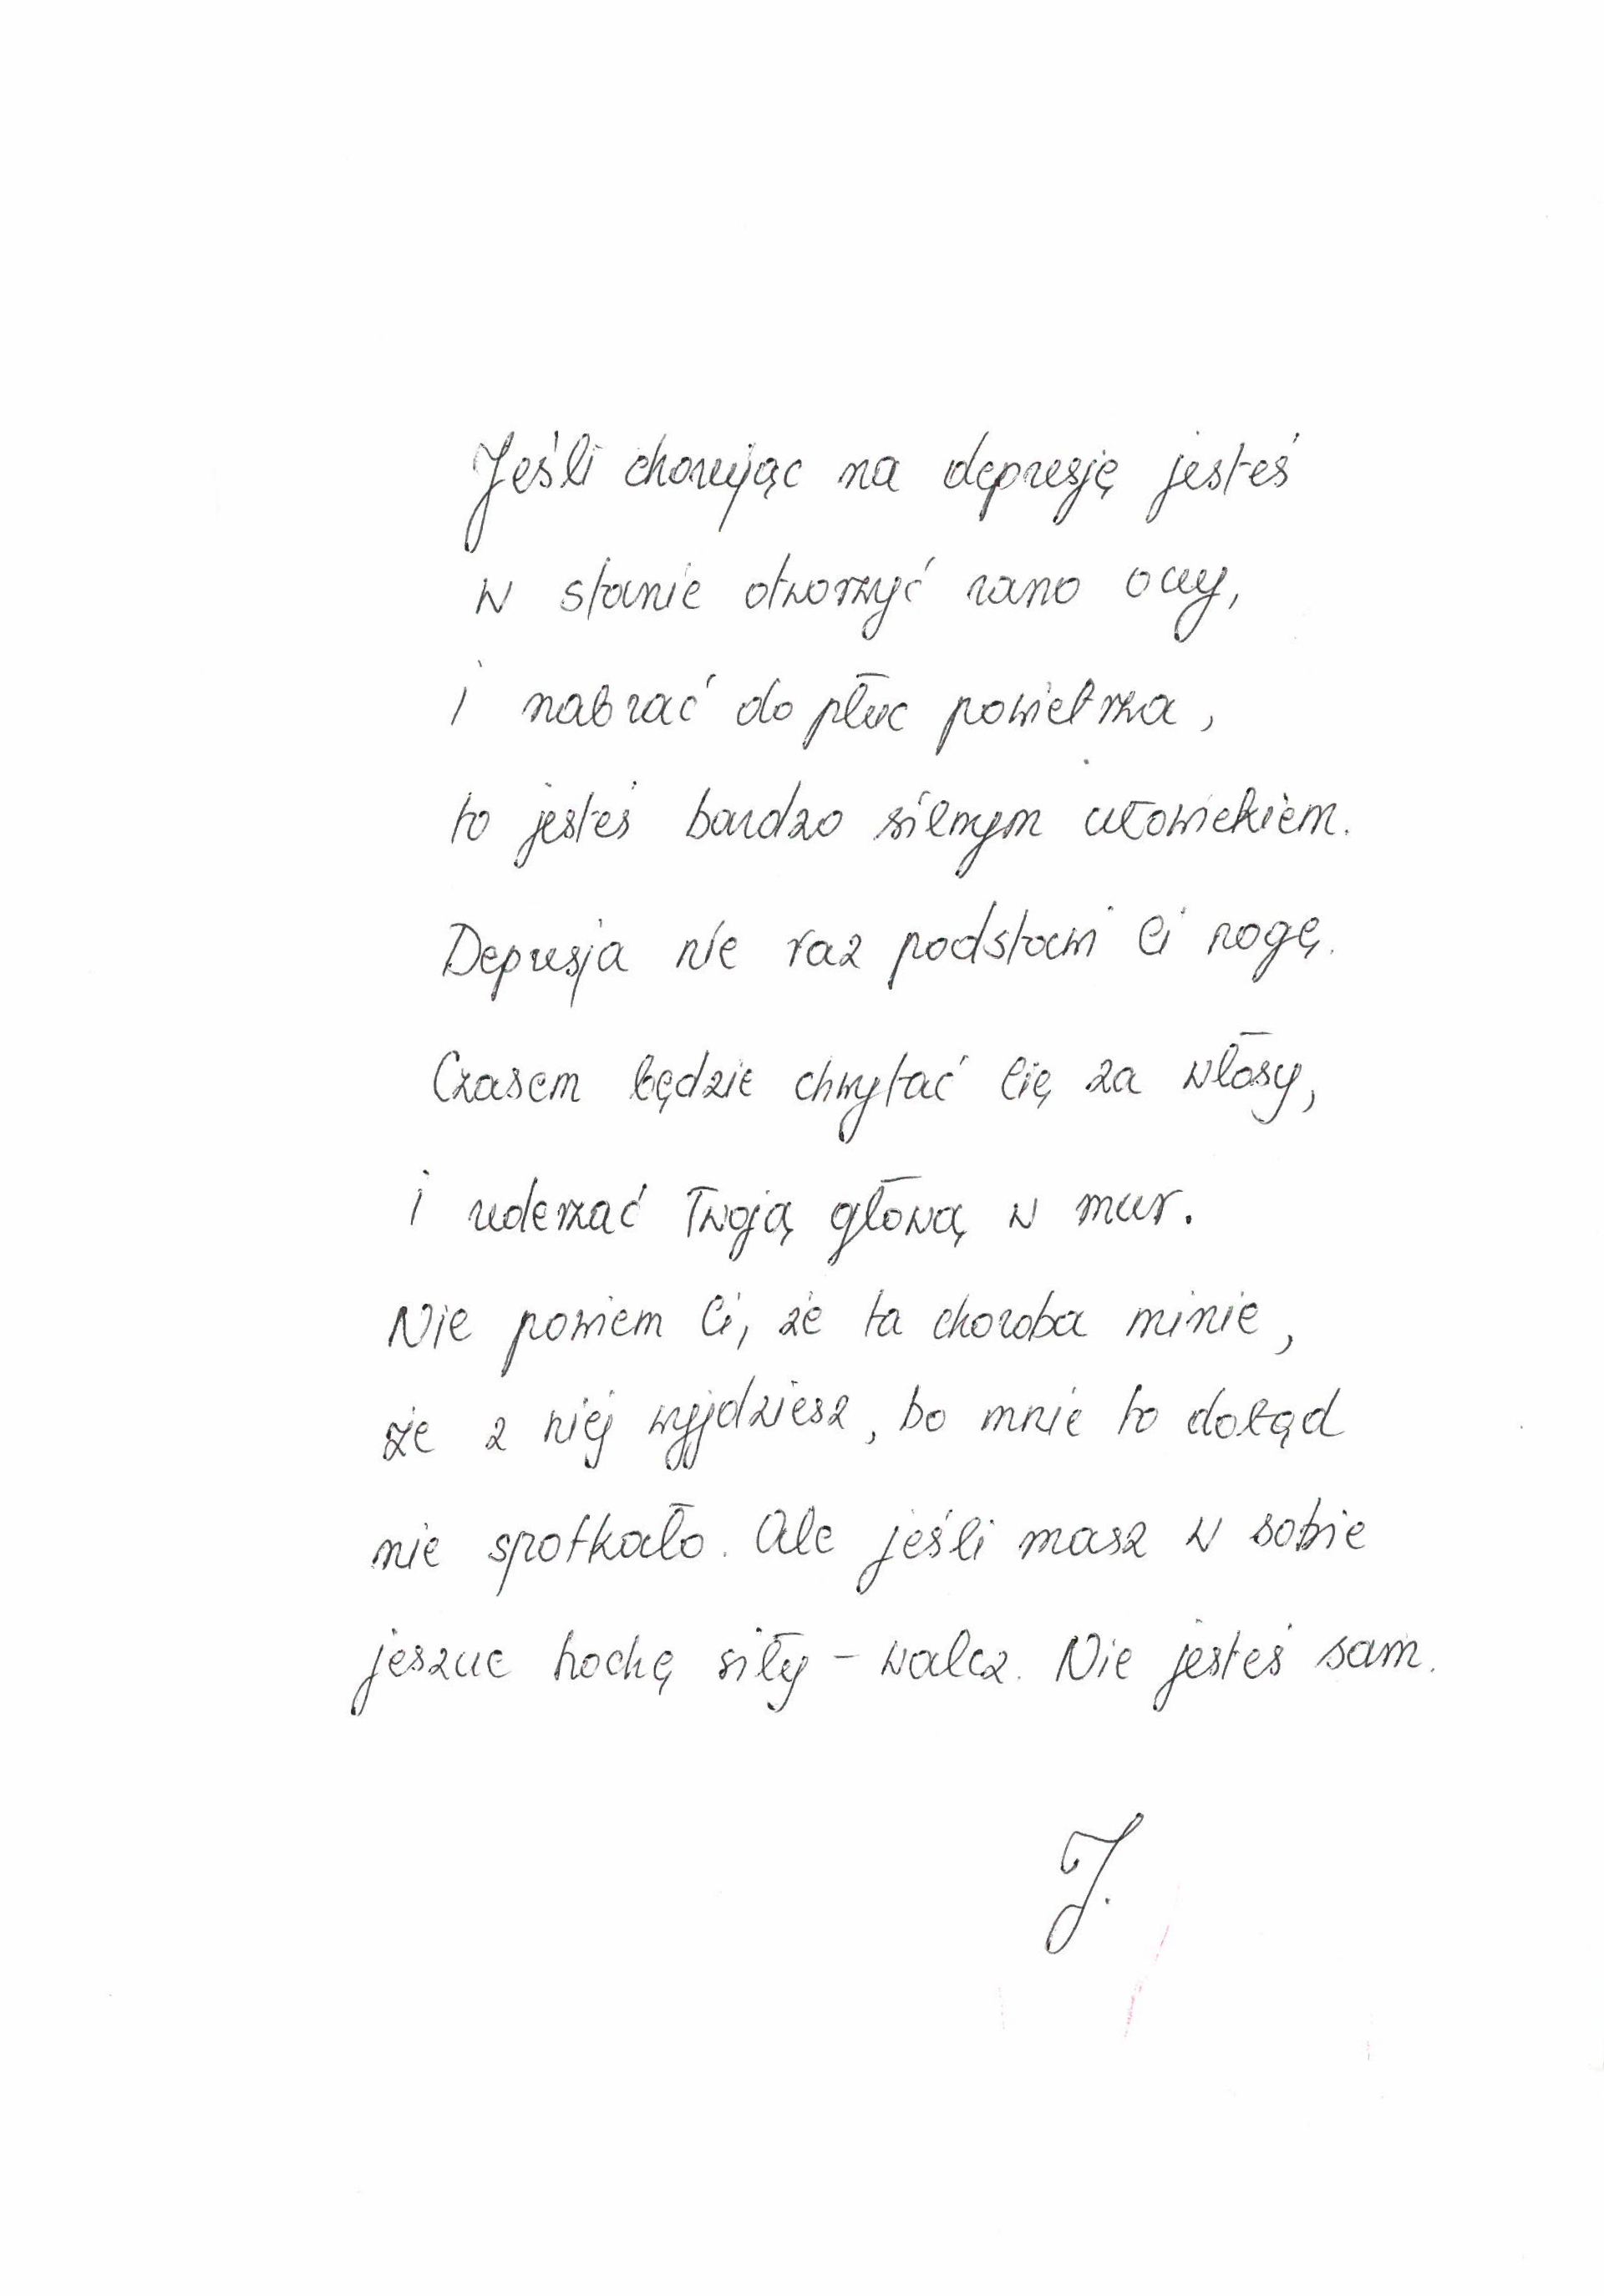 Jeśli chorując na depresję jesteś
w stanie otworzyć rano oczy,
i nabrać do płuc powietrza,
to jesteś bardzo silnym człowiekiem.
Depresja nie raz podstawi Ci nogę.
Czasem będzie chwytać Cię za włosy,
i uderzać Twoją głową w mur.
Nie powiem Ci, że ta choroba minie,
że z niej wyjdziesz, bo mnie to dotąd
nie spotkało. Ale jeśli masz w sobie
jeszcze trochę siły - walcz. Nie jesteś sam.
J.